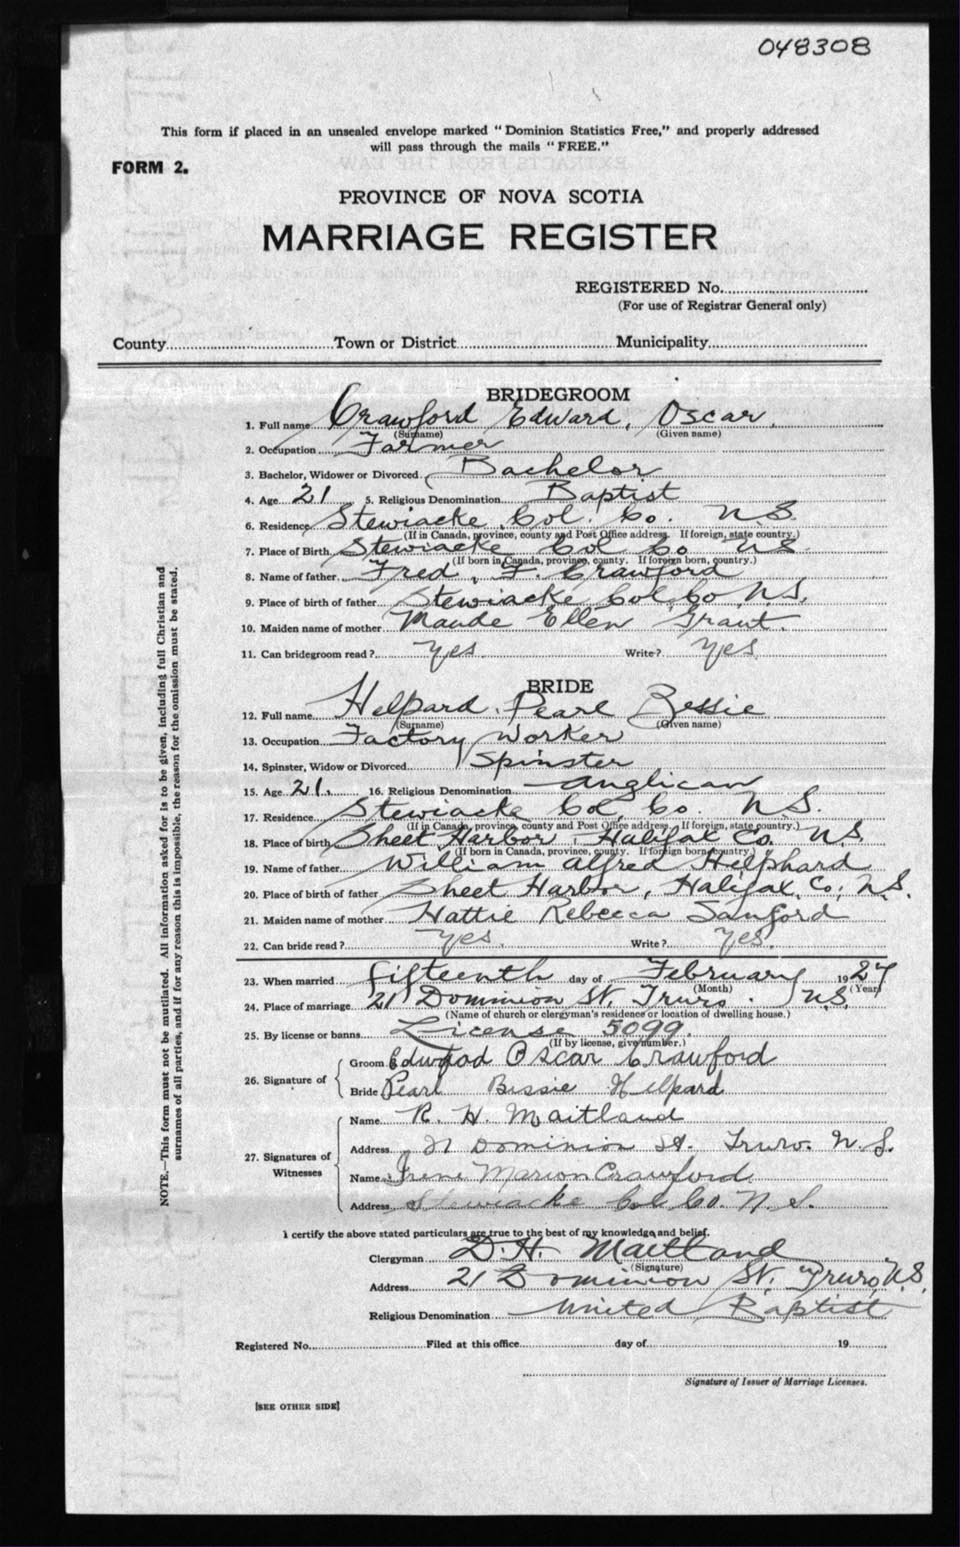 048308
This form if placed in an unsealed envelope marked "Dominion Statistics Free," and properly addressed
will pass through the mails "FREE."
FORM 2.
PROVINCE OF NOVA SCOTIA
MARRIAGE REGISTER
REGISTERED No.
(For use of Registrar General only)
County Town or District Municipality
BRIDEGROOM
1. Full name Crawford Edward, Oscar
(Surname) (Given name)
2. Occupation Farmer
3. Bachelor, Widower or Divorced Bachelor
4. Age 21 5. Religious Denomination Baptist
6. Residence Stewiacke Col. Co. N.S.
(If in Canada, province, county and Post Office address. If foreign, state country.)
7. Place of Birth Stewiacke Col Co N.S.
(If born in Canada, province, county. If foreign born, country.)
8. Name of father Fred, F. Crawford
9. Place of birth of father Stewiacke Col. Co N.S.
10. Maiden name of mother Maude Ellen Grant.
11. Can bridegroom read? Yes Write? Yes
BRIDE
12. Full name Helpard. Pearl Bessie
(Surname) (Given name)
13. Occupation Factory Worker
14. Spinster, Widow or Divorced Spinster
15. Age 21. 16. Religious Denomination Anglican
17. Residence Stewiacke Col. Co. N.S.
(If in Canada, province, county and Post Office address. If foreign, state country.)
18. Place of birth Sheet Harbor, Halifax Co. N.S.
(If born in Canada, province, county. If foreign born, country.)
19. Name of father William Alfred Helphard
20. Place of birth of father Sheet Harbor, Halifax, Co. N.S.
21. Maiden name of mother Hattie Rebecca Sanford
22. Can bride read? Yes. Write? Yes.
23. When married fifteenth day of February 1927
(Month) (Year)
24. Place of marriage 21 Dominion St. Truro. N.S.
(Name of church or clergyman's residence or location of dwelling house.)
25. By license or banns License 5099.
(If by license, give number.)
26. Signature of
Groom Edward Oscar Crawford
Bride Pearl Bessie Helpard
27. Signatures of Witnesses
Name R. H. Maitland
Address 21 Dominion St. Truro. N.S.
Name Irene Marion Crawford
Address Stewiacke Col. Co. N.S.
I certify the above stated particulars are true to the best of my knowledge and belief.
Clergyman D. H. Maitland
(Signature)
Address 21 Dominion St. Truro, N.S.
Religious Denomination United Baptist
Registered No. Filed at this office day of 19
Signature of Issuer of Marriage Licenses.
[SEE OTHER SIDE]
NOTE.—This form must not be mutilated. All information asked for is to be given, including full Christian and
surnames of all parties, and if for any reason this is impossible, the reason for the omission must be stated.